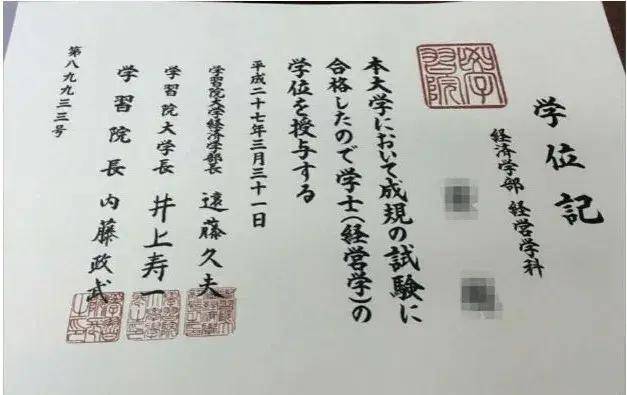 学位記
経済学部 経営学科
学習院
本大学において成規の試験に
合格したので学士(経営学)の
学位を授与する
平成二十七年三月三十一日
学習院大学経済学部長 遠藤久夫
学習院大学長 井上寿一
学習院長 内藤政武
第八九九三三号